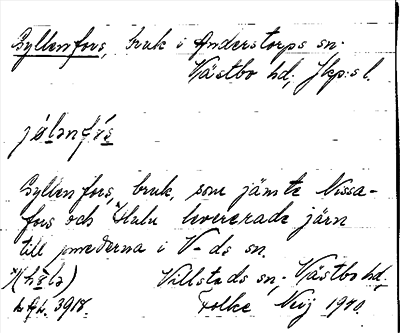 Gyllenfors, bruk i Anderstorps sn.
Västbo hd; Jkp:s l.
Gyllenfors, bruk, som jämte Nissa-
fors och Hulu levererade järn
till smederna i V-ds sn.
Villstads sn, Västbo hd,
Folke 1940.